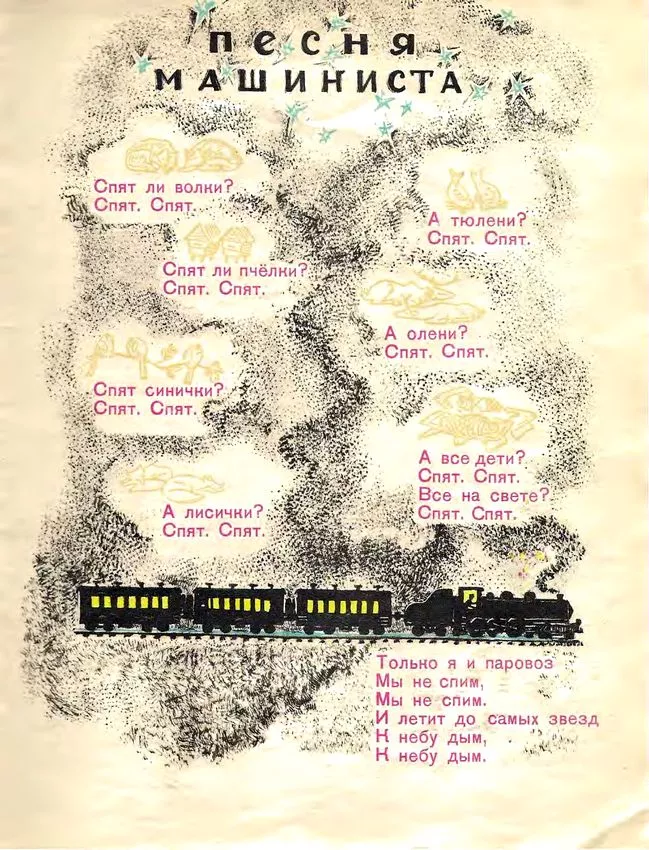 ПЕСНЯ
МАШИНИСТА
Спят ли волки?
Спят. Спят.
Спят ли пчёлки?
Спят. Спят.
Спят синички?
Спят. Спят.
А лисички?
Спят. Спят.
А тюлени?
Спят. Спят.
А олени?
Спят. Спят.
А все дети?
Спят. Спят.
Все на свете?
Спят. Спят.
Только я и паровоз
Мы не спим,
Мы не спим.
И летит до самых звезд
К небу дым,
К небу дым.